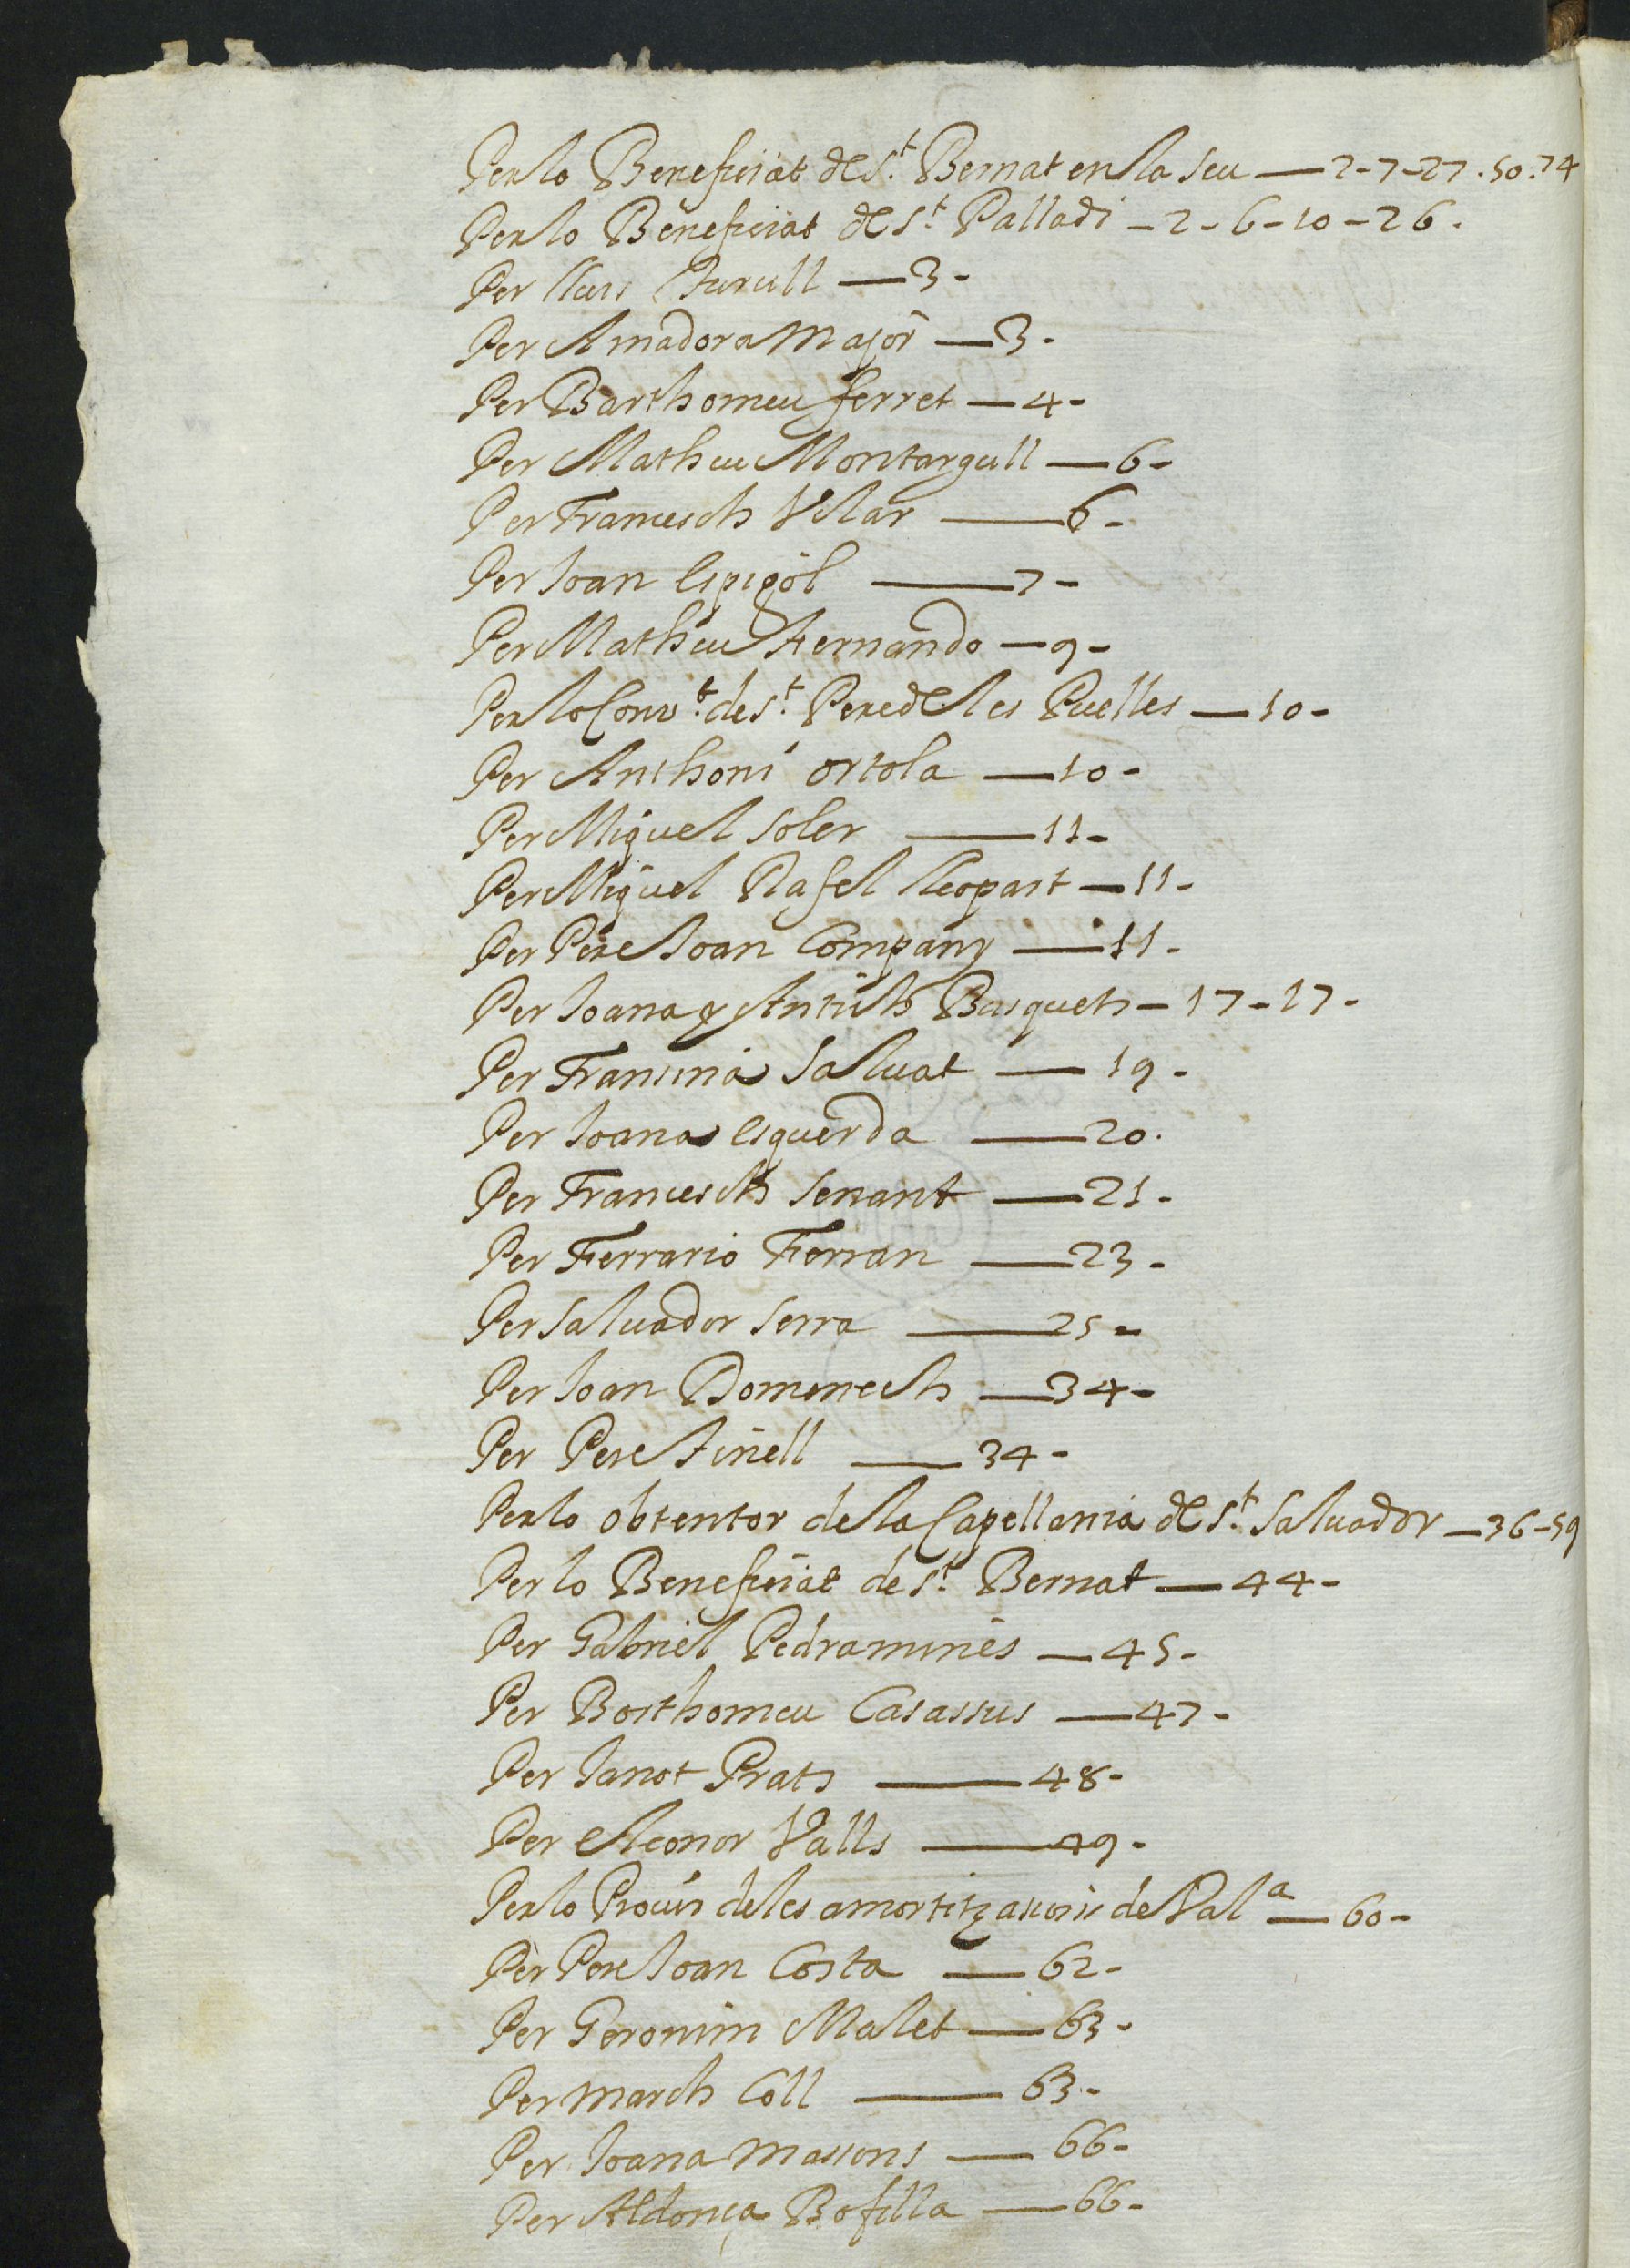 Per lo Beneficiat de St. Bernat en la Seu — 2-7-27.50.74
Per lo Beneficiat de St. Palladi - 2-6-10-26.
Per lluis Turull — 3-
Per Amadora Major — 3-
Per Barthomeu ferret — 4-
Per Matheu Montargull — 6-
Per Francesch Vilar — 6-
Per Joan Espigol — 7-
Per Matheu Fernando — 9-
Per lo Convt. de St. Pere de les Puelles — 10-
Per Anthoni ortola — 10-
Per Miquel Soler — 11-
Per Miquel Rafel lleopart — 11-
Per Pere Joan Company — 11-
Per Joana y Antich Busquets - 17-17-
Per Francina Saluat — 19-
Per Joana Esquerda — 20.
Per Francesch Senant — 21-
Per Ferrario Ferran — 23-
Per Saluador Serra — 25-
Per Joan Domenech — 34-
Per Pere Finell — 34-
Per lo obtentor de la Capellania de St. Saluador — 36-59
Per lo Beneficiat de St. Bernat — 44-
Per Gabriel Pedramines — 45-
Per Borthomeu Casassus — 47-
Per Janot Prats — 48-
Per Eleonor Valls — 49-
Per lo Procur de les amortitzasions de Vala — 60-
Per Pere Joan Costa — 62-
Per Geronim Malet — 63-
Per March Coll — 63-
Per Joana Massons — 66-
Per Aldonça Bofilla — 66-